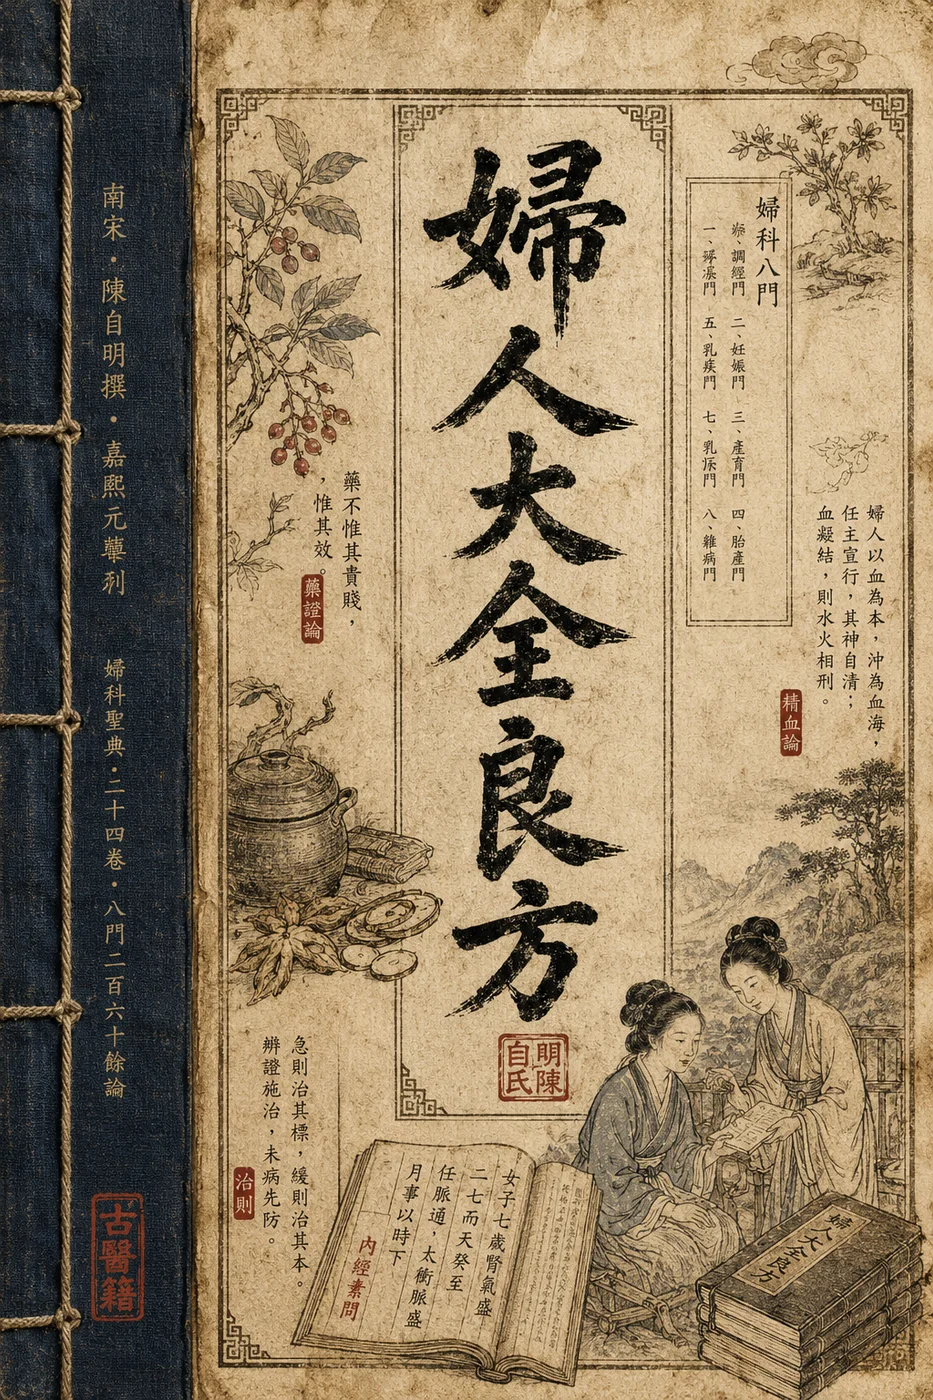 婦人大全良方
明陳
自氏
婦科八門
調經門
二、妊娠門
三、產育門
四、胎產門
五、乳疾門
八、雜病門
婦人以血為本，沖為血海，
任主宣行，其神自清；
血凝結，則水火相刑。
精血論
藥不惟其貴賤，
惟其效。
藥證論
急則治其標，緩則治其本。
辨證施治，未病先防。
治則
女子七歲腎氣盛
二七而天癸至
任脈通，太衝脈盛
月事以時下
內經素問
婦人大全良方
南宋·陳自明撰·嘉熙元
婦科聖典·二十四卷·八門二百六十餘論
古醫籍